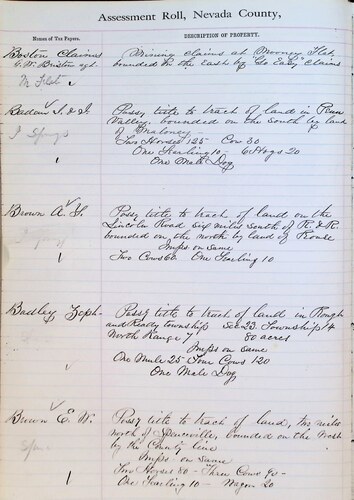 Assessment Roll, Nevada County,
Names of Tax Payers.
DESCRIPTION OF PROPERTY.
Boston Claims
Mining Claims at Mooney Flat,
C. W. Bristow agt.
bounded on the East by "Go Easy" Claims
M Flat
1
Badow I. & J.
Possy title to tract of land in Penn
Valley, bounded on the South by land
of Maloney
Two Horses 125 Cow 30
One Yearling 10 6 Hogs 20
1
One Male Dog
Brown A. Y.
Possy title to tract of land on the
Lincoln Road Six miles South of R. & R.
bounded on the north by land of Rouse
Imps on Same
1
Two Cows 60 One Yearling 10
Badley Zeph
Possy title to tract of land in Rough
and Ready township Sec 23 Township 14
North Range 7 80 acres
Imps on Same
One Mule 25 Four Cows 120
1
One Male Dog
Brown E. W.
Possy title to tract of land, two miles
north of Spenceville, bounded on the West
by the County line
Imps on Same
1
Two Horses 80 Three Cows 90
One Yearling 10 Wagon 20